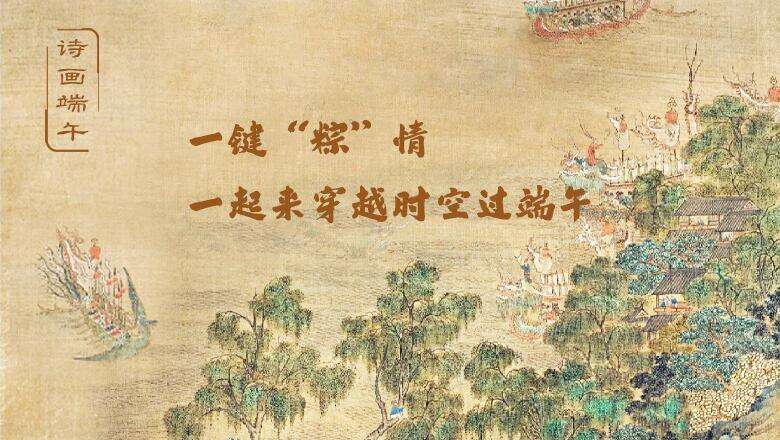 诗画端午
一键“粽”情
一起来穿越时空过端午